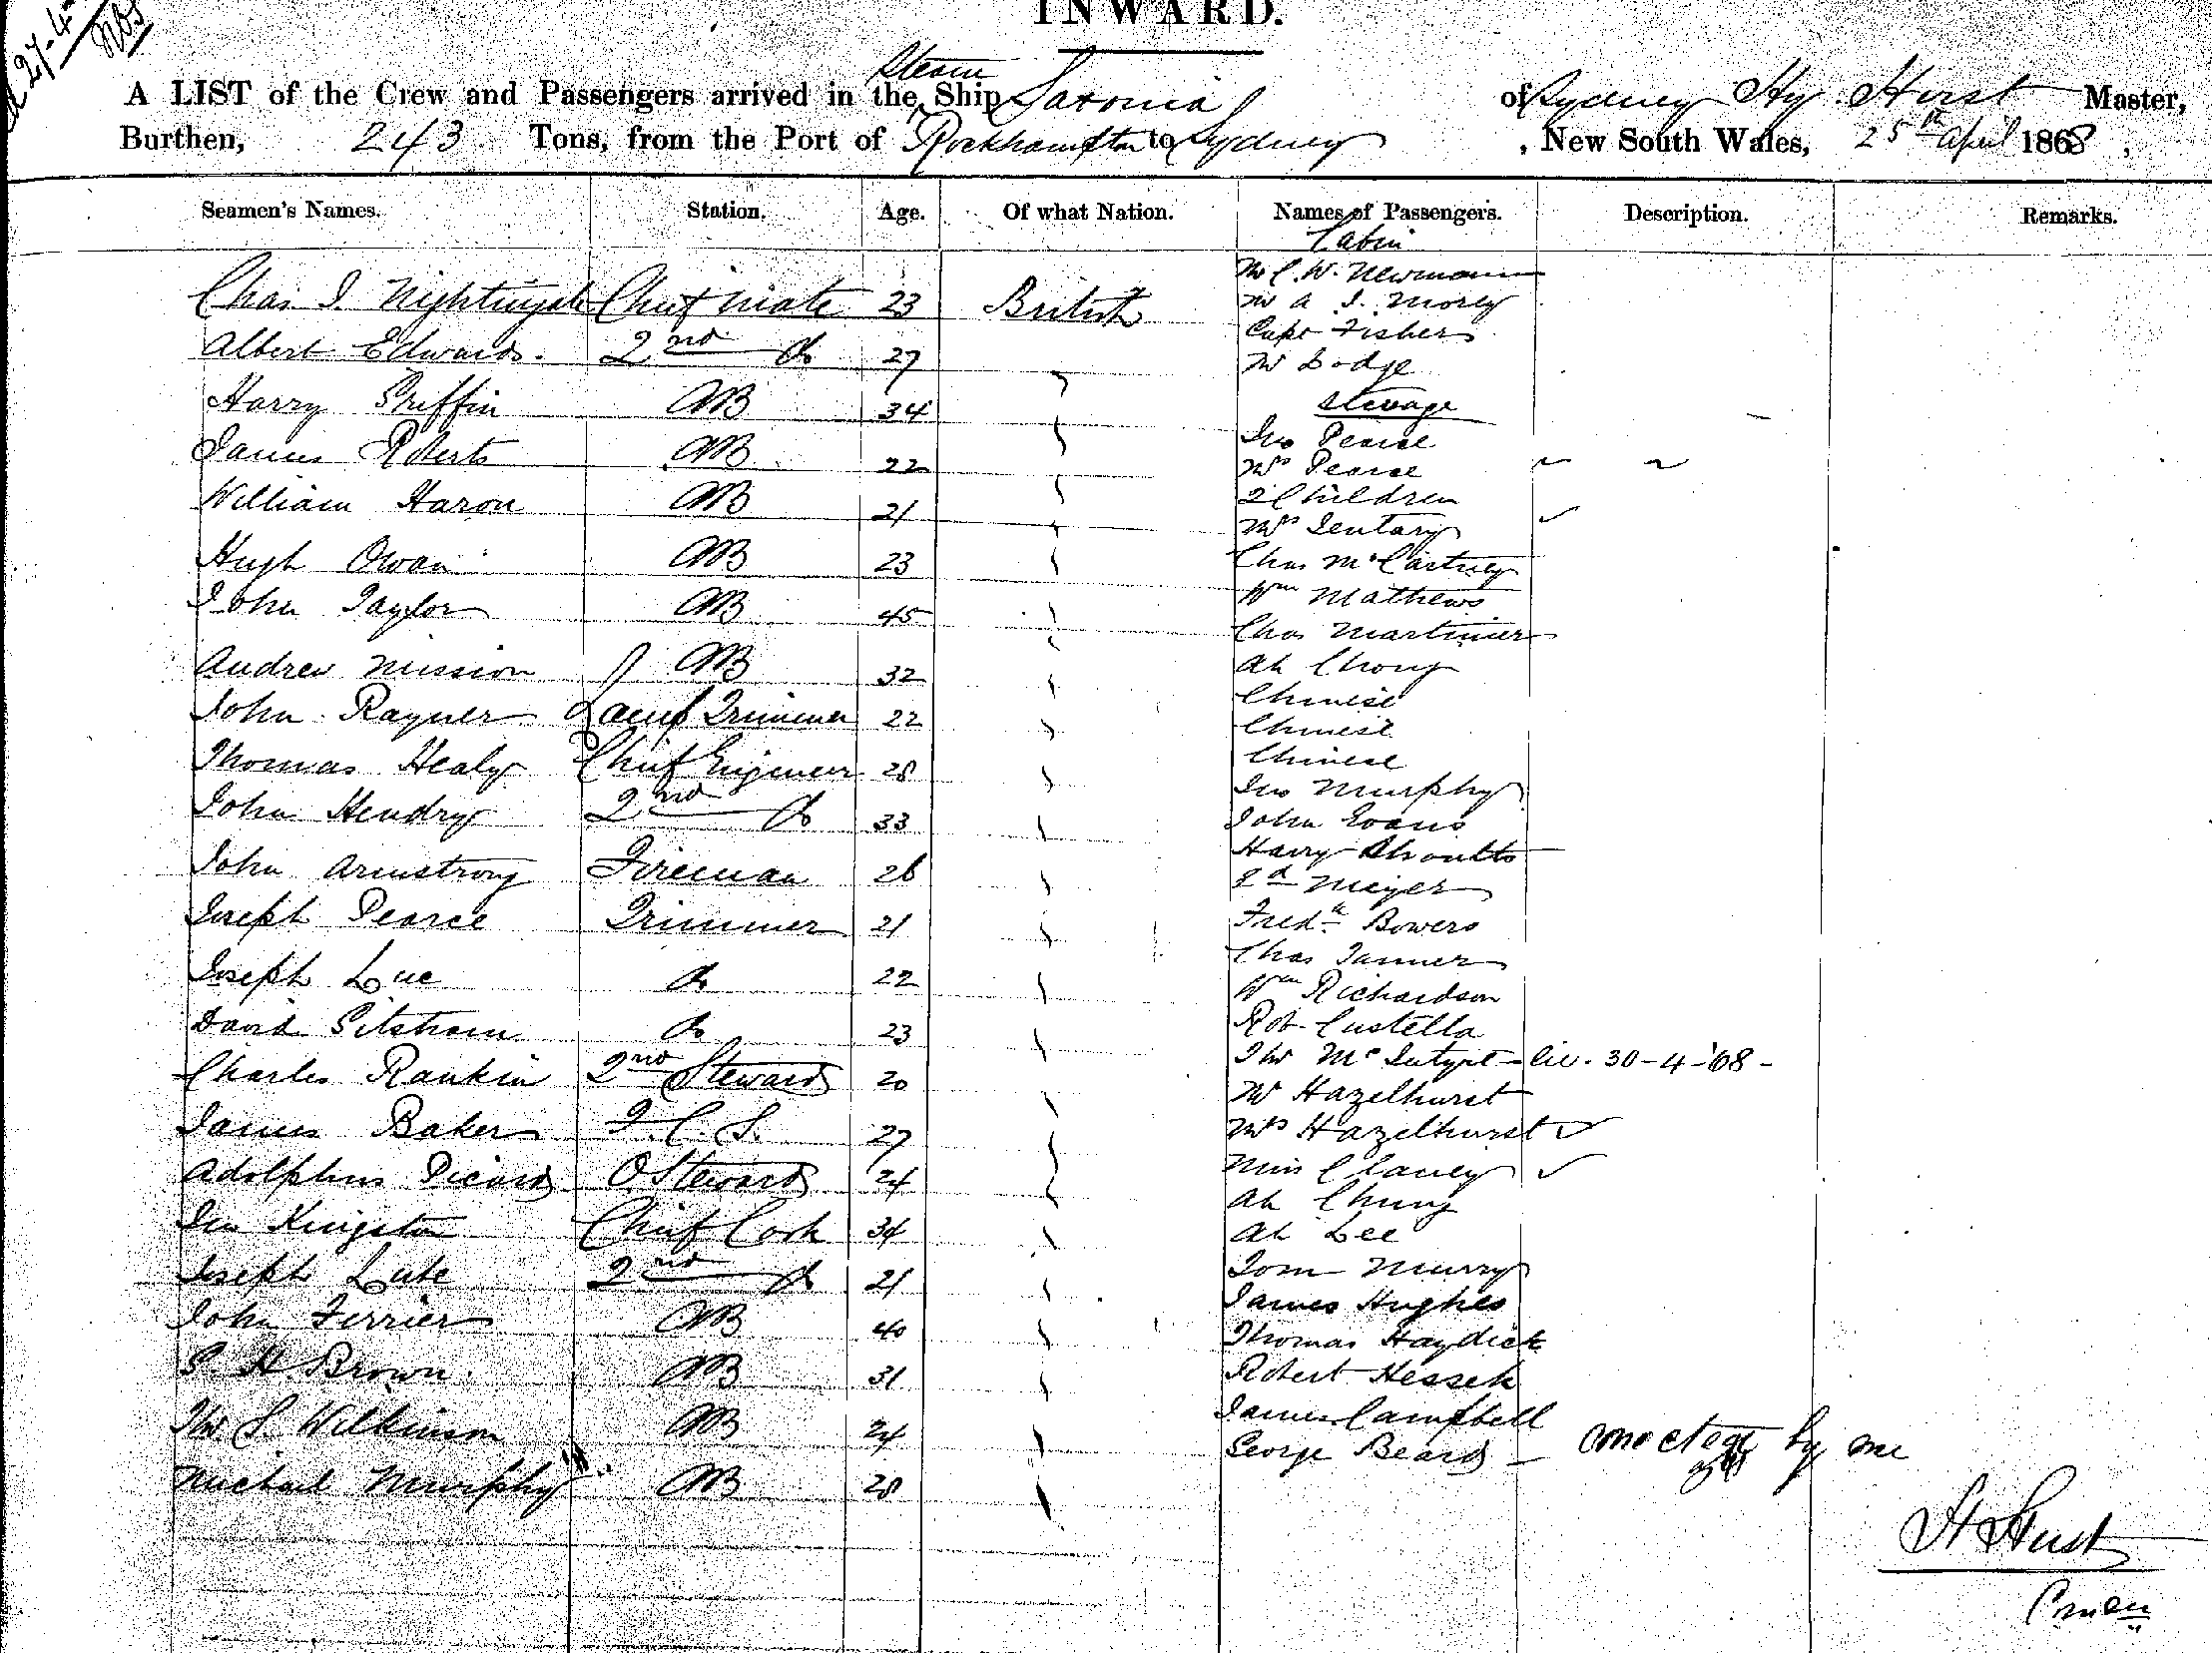 27-4
INWARD.
Steam
A LIST of the Crew and Passengers arrived in the Ship Saxonia of Sydney Hy. Hirst Master,
Burthen, 243 Tons, from the Port of Rockhampton to Sydney, New South Wales, 25th April 1868,
Seamen's Names. Station. Age. Of what Nation. Names of Passengers. Description. Remarks.
Cabin
Mr C. W. Newmann
Chas I. Nightingale Chief Mate 23 British
Mr A. I. Morey
Capt Fisher
Albert Edwards. 2nd Do 27
Mr Dodge
Harry Griffin AB 34
Steerage
James Roberts AB 22
Jno Pearse
Mrs Pearse
William Haron AB 21
2 Children
Mrs Sentary
Hugh Owan AB 23
Chas McCartney
John Taylor AB 45
Wm Mathews
Chas Martinier
Andrew Mission AB 32
Ah Chong
John Rayner Trimmer 22
Chinese
Chinese
Thomas Healy Chief Engineer 28
Chinese
Jno Murphy
John Hendry 2nd Do 33
John Evans
Harry
John Armstrong Fireman 26
Ed Meyer
Joseph Pearce Trimmer 21
Fredk Bowers
Chas Tanner
Joseph Luc Do 22
Wm Richardson
David Do 23
Rob Custella
Thos McIntyre - liv. 30-4-'68-
Charles Rankin 2nd Steward 20
Mr Hazelhurst
James Baker F.C.S. 27
Mrs Hazelhurst
Miss Clancy
Adolphus Picard O Steward 24
Ah Chung
Jno Kingston Chief Cook 34
Ah Lee
Joseph Lute 2nd Do 21
Tom Murry
John Ferrier AB 40
James Hughes
Thomas Haydick
G. H. Brown AB 31
Robert Hessek
Thos S. Wilkinson AB 24
James Campbell
George Beard - by me
Michael Murphy AB 28
H Hirst